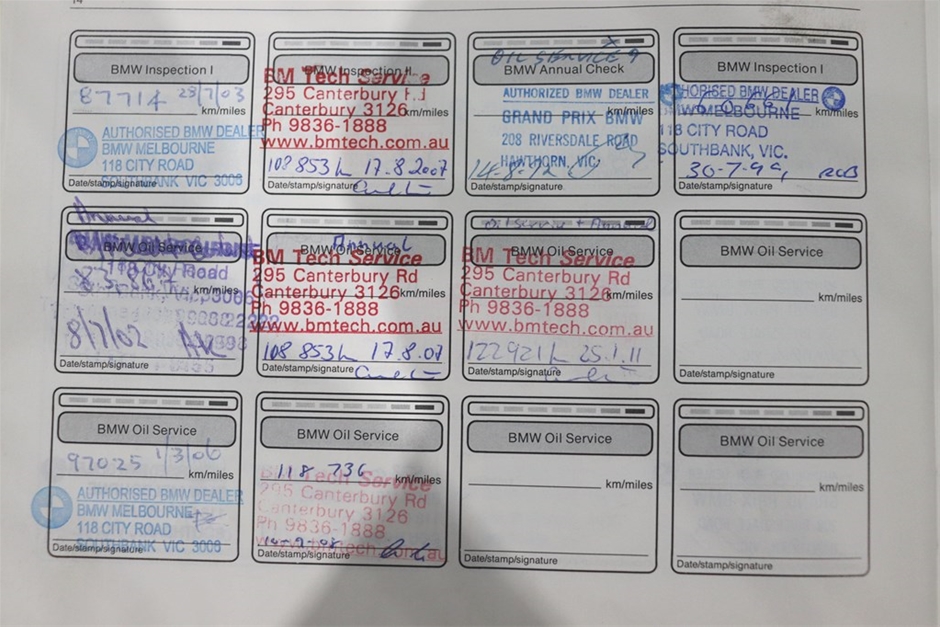 14
BMW Inspection I
87714 28/7/03
km/miles
AUTHORISED BMW DEALER
BMW MELBOURNE
118 CITY ROAD
SOUTHBANK VIC 3006
Date/stamp/signature
BMW Inspection II
BM Tech Service
295 Canterbury Rd
Canterbury 3126
km/miles
Ph 9836-1888
www.bmtech.com.au
108 853 17.8.2007
Date/stamp/signature
OIL SERVICE
BMW Annual Check
AUTHORIZED BMW DEALER
km/miles
GRAND PRIX BMW
208 RIVERSDALE ROAD
HAWTHORN, VIC.
Date/stamp/signature
BMW Inspection I
AUTHORISED BMW DEALER
km/miles
BMW MELBOURNE
118 CITY ROAD
SOUTHBANK, VIC.
30-7-99
Date/stamp/signature
Annual
BMW Oil Service
City Road
km/miles
8/7/02
Date/stamp/signature
Annual
BMW Oil Service
BM Tech Service
295 Canterbury Rd
Canterbury 3126
km/miles
Ph 9836-1888
www.bmtech.com.au
108 853 17.8.07
Date/stamp/signature
Oil Service + Annual
BMW Oil Service
BM Tech Service
295 Canterbury Rd
Canterbury 3126
km/miles
Ph 9836-1888
www.bmtech.com.au
122921 25.1.11
Date/stamp/signature
BMW Oil Service
km/miles
Date/stamp/signature
BMW Oil Service
97025 1/3/06
km/miles
AUTHORISED BMW DEALER
BMW MELBOURNE
118 CITY ROAD
SOUTHBANK VIC 3006
Date/stamp/signature
BMW Oil Service
118 736
km/miles
BM Tech Service
295 Canterbury Rd
Canterbury 3126
Ph 9836-1888
www.bmtech.com.au
Date/stamp/signature
BMW Oil Service
km/miles
Date/stamp/signature
BMW Oil Service
km/miles
Date/stamp/signature